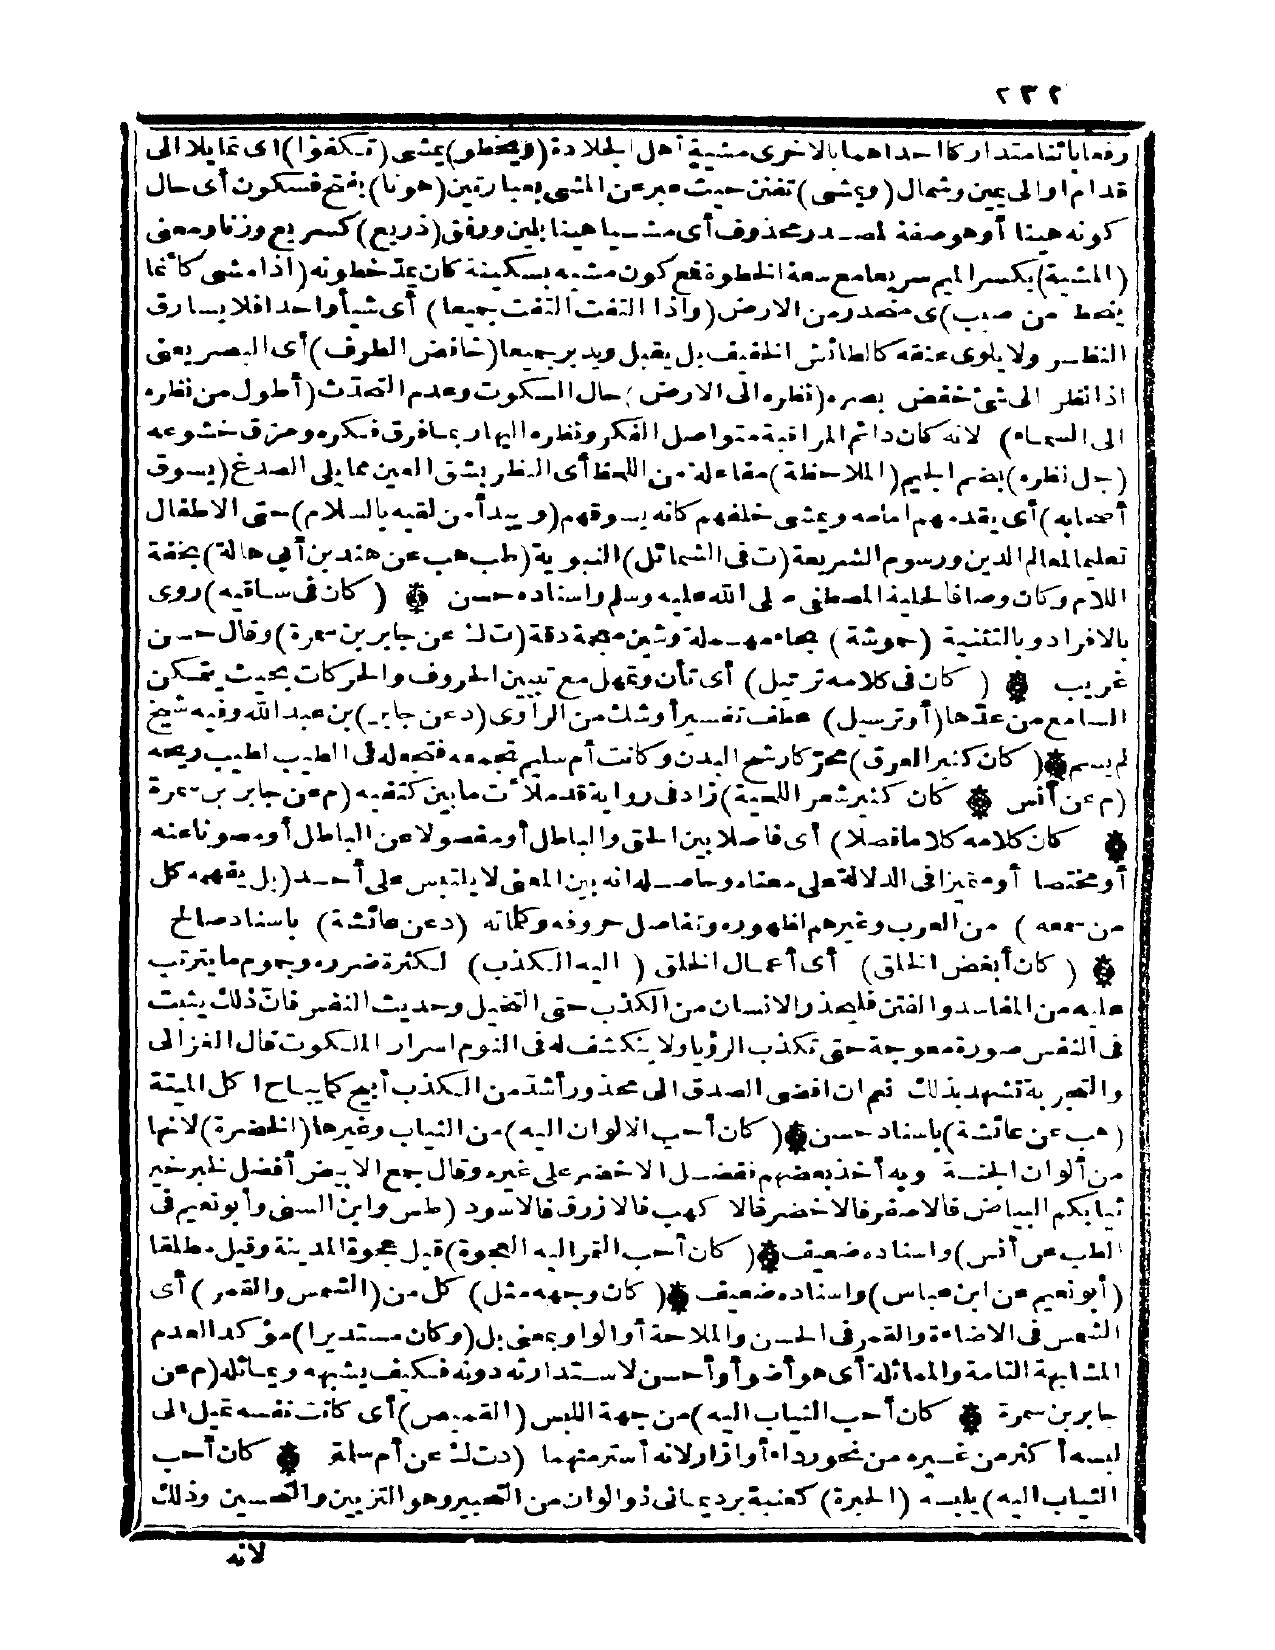 ٢٣٢
رفعا بائنا متداركا احداهما بالاخرى مشية أهل الجلادة (ويخطو) يمشى (تكفؤا) اى تمايلا الى
قدام أو الى يمين وشمال (ويمشى) تفنن حيث عبر عن المشى بعبارتين (هونا) بفتح فسكون أى حال
كونه هينا أو هو صفة لمصدر محذوف أى مشيا هينا بلين ورفق (ذريع) كسريع وزنا ومعنى
(المشية) بكسر الميم سريعا مع سعة الخطوة فمع كون مشيه بسكينة كان يمد خطوته (اذا مشى كأنما
ينحط من صبب) ى منحدر من الارض (واذا التفت التفت جميعا) أى شيأ واحدا فلا يسارق
النظر ولا يلوى عنقه كالطائش الخفيف بل يقبل ويدبر جميعا (خافض الطرف) أى البصر يعنى
اذا نظر الى شئ خفض بصره (نظره الى الارض) حال السكوت وعدم التحدث (أطول من نظره
الى السماء) لانه كان دائم المراقبة متواصل الفكر ونظره اليها ربما فرق فكره ومزق خشوعه
(جل نظره) بضم الجيم (الملاحظة) مفاعلة من اللحظ أى النظر بشق العين مما يلى الصدغ (يسوق
أصحابه) أى يقدمهم امامه ويمشى خلفهم كانه يسوقهم (ويبدأ من لقيه بالسلام) حتى الاطفال
تعليما لمعالم الدين ورسوم الشريعة (ت فى الشمائل) النبوية (طب هب عن هند بن أبى هالة) بخفة
اللام وكان وصافا لحلية المصطفى صلى الله عليه وسلم واسناده حسن ۞ (كان فى ساقيه) روى
بالافراد وبالتثنية (حموشة) بحاء مهملة وشين معجمة دقة (ت ك عن جابر بن سمرة) وقال حسن
غريب ۞ (كان فى كلامه ترتيل) أى تأن وتمهل مع تبيين الحروف والحركات بحيث يتمكن
السامع من عدها (أو ترسيل) عطف تفسير أو شك من الراوى (د عن جابر) بن عبد الله وفيه شيخ
لم يسم ۞ (كان كثير العرق) محركا رشح البدن وكانت أم سليم تجمعه فتجعله فى الطيب لطيب ريحه
(م عن أنس ۞ كان كثير شعر اللحية) زاد فى رواية قد ملأت ما بين كتفيه (م عن جابر بن سمرة
۞ كان كلامه كلاما فصلا) أى فاصلا بين الحق والباطل أو مفصولا عن الباطل أو مصونا عنه
أو مختصا أو مميزا فى الدلالة على معناه وحاصله انه بين المعنى لا يلتبس على أحد (بل يفهمه كل
من سمعه) من العرب وغيرهم لظهوره وتفاصل حروفه وكلماته (د عن عائشة) باسناد صالح
۞ (كان أبغض الخلق) أى أعمال الخلق (اليه الكذب) لكثرة ضرره وجموم ما يترتب
عليه من المفاسد والفتن فليحذر الانسان من الكذب حتى التخيل وحديث النفس فان ذلك يثبت
فى النفس صورة معوجة حتى تكذب الرؤيا ولا ينكشف له فى النوم اسرار الملكوت قال الغزالى
والتجربة تشهد بذلك نعم ان افضى الصدق الى محذور أشد من الكذب أبيح كما يباح اكل الميتة
(هب عن عائشة) باسناد حسن ۞ (كان أحب الالوان اليه) من الثياب وغيرها (الخضرة) لانها
من ألوان الجنة وبه أخذ بعضهم ففضل الاخضر على غيره وقال جمع الابيض أفضل لخبر خير
ثيابكم البياض فالاصفر فالاخضر فالا كهب فالازرق فالاسود (طس وابن السنى وأبو نعيم فى
الطب عن أنس) واسناده ضعيف ۞ (كان أحب التمر اليه العجوة) قيل عجوة المدينة وقيل مطلقا
(أبو نعيم عن ابن عباس) واسناده ضعيف ۞ (كان وجهه مثل) كل من (الشمس والقمر) أى
الشمس فى الاضاءة والقمر فى الحسن والملاحة أو الواو بمعنى بل (وكان مستديرا) مؤكد لعدم
المشابهة التامة والمماثلة أى هو أضوأ وأحسن لاستدارته دونه فكيف يشبهه ويماثله (م عن
جابر بن سمرة ۞ كان أحب الثياب اليه) من جهة اللبس (القميص) أى كانت نفسه تميل الى
لبسه أكثر من غيره من نحو رداء أو ازار لانه أستر منهما (د ت ك عن أم سلمة ۞ كان أحب
الثياب اليه) يلبسه (الحبرة) كعنبة برد يمانى ذو الوان من التحبير وهو التزيين والتحسين وذلك
لانه